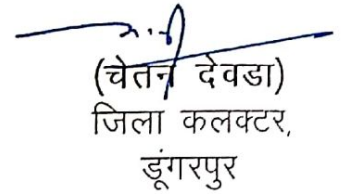 (चेतन देवडा)
जिला कलक्टर,
डूंगरपुर